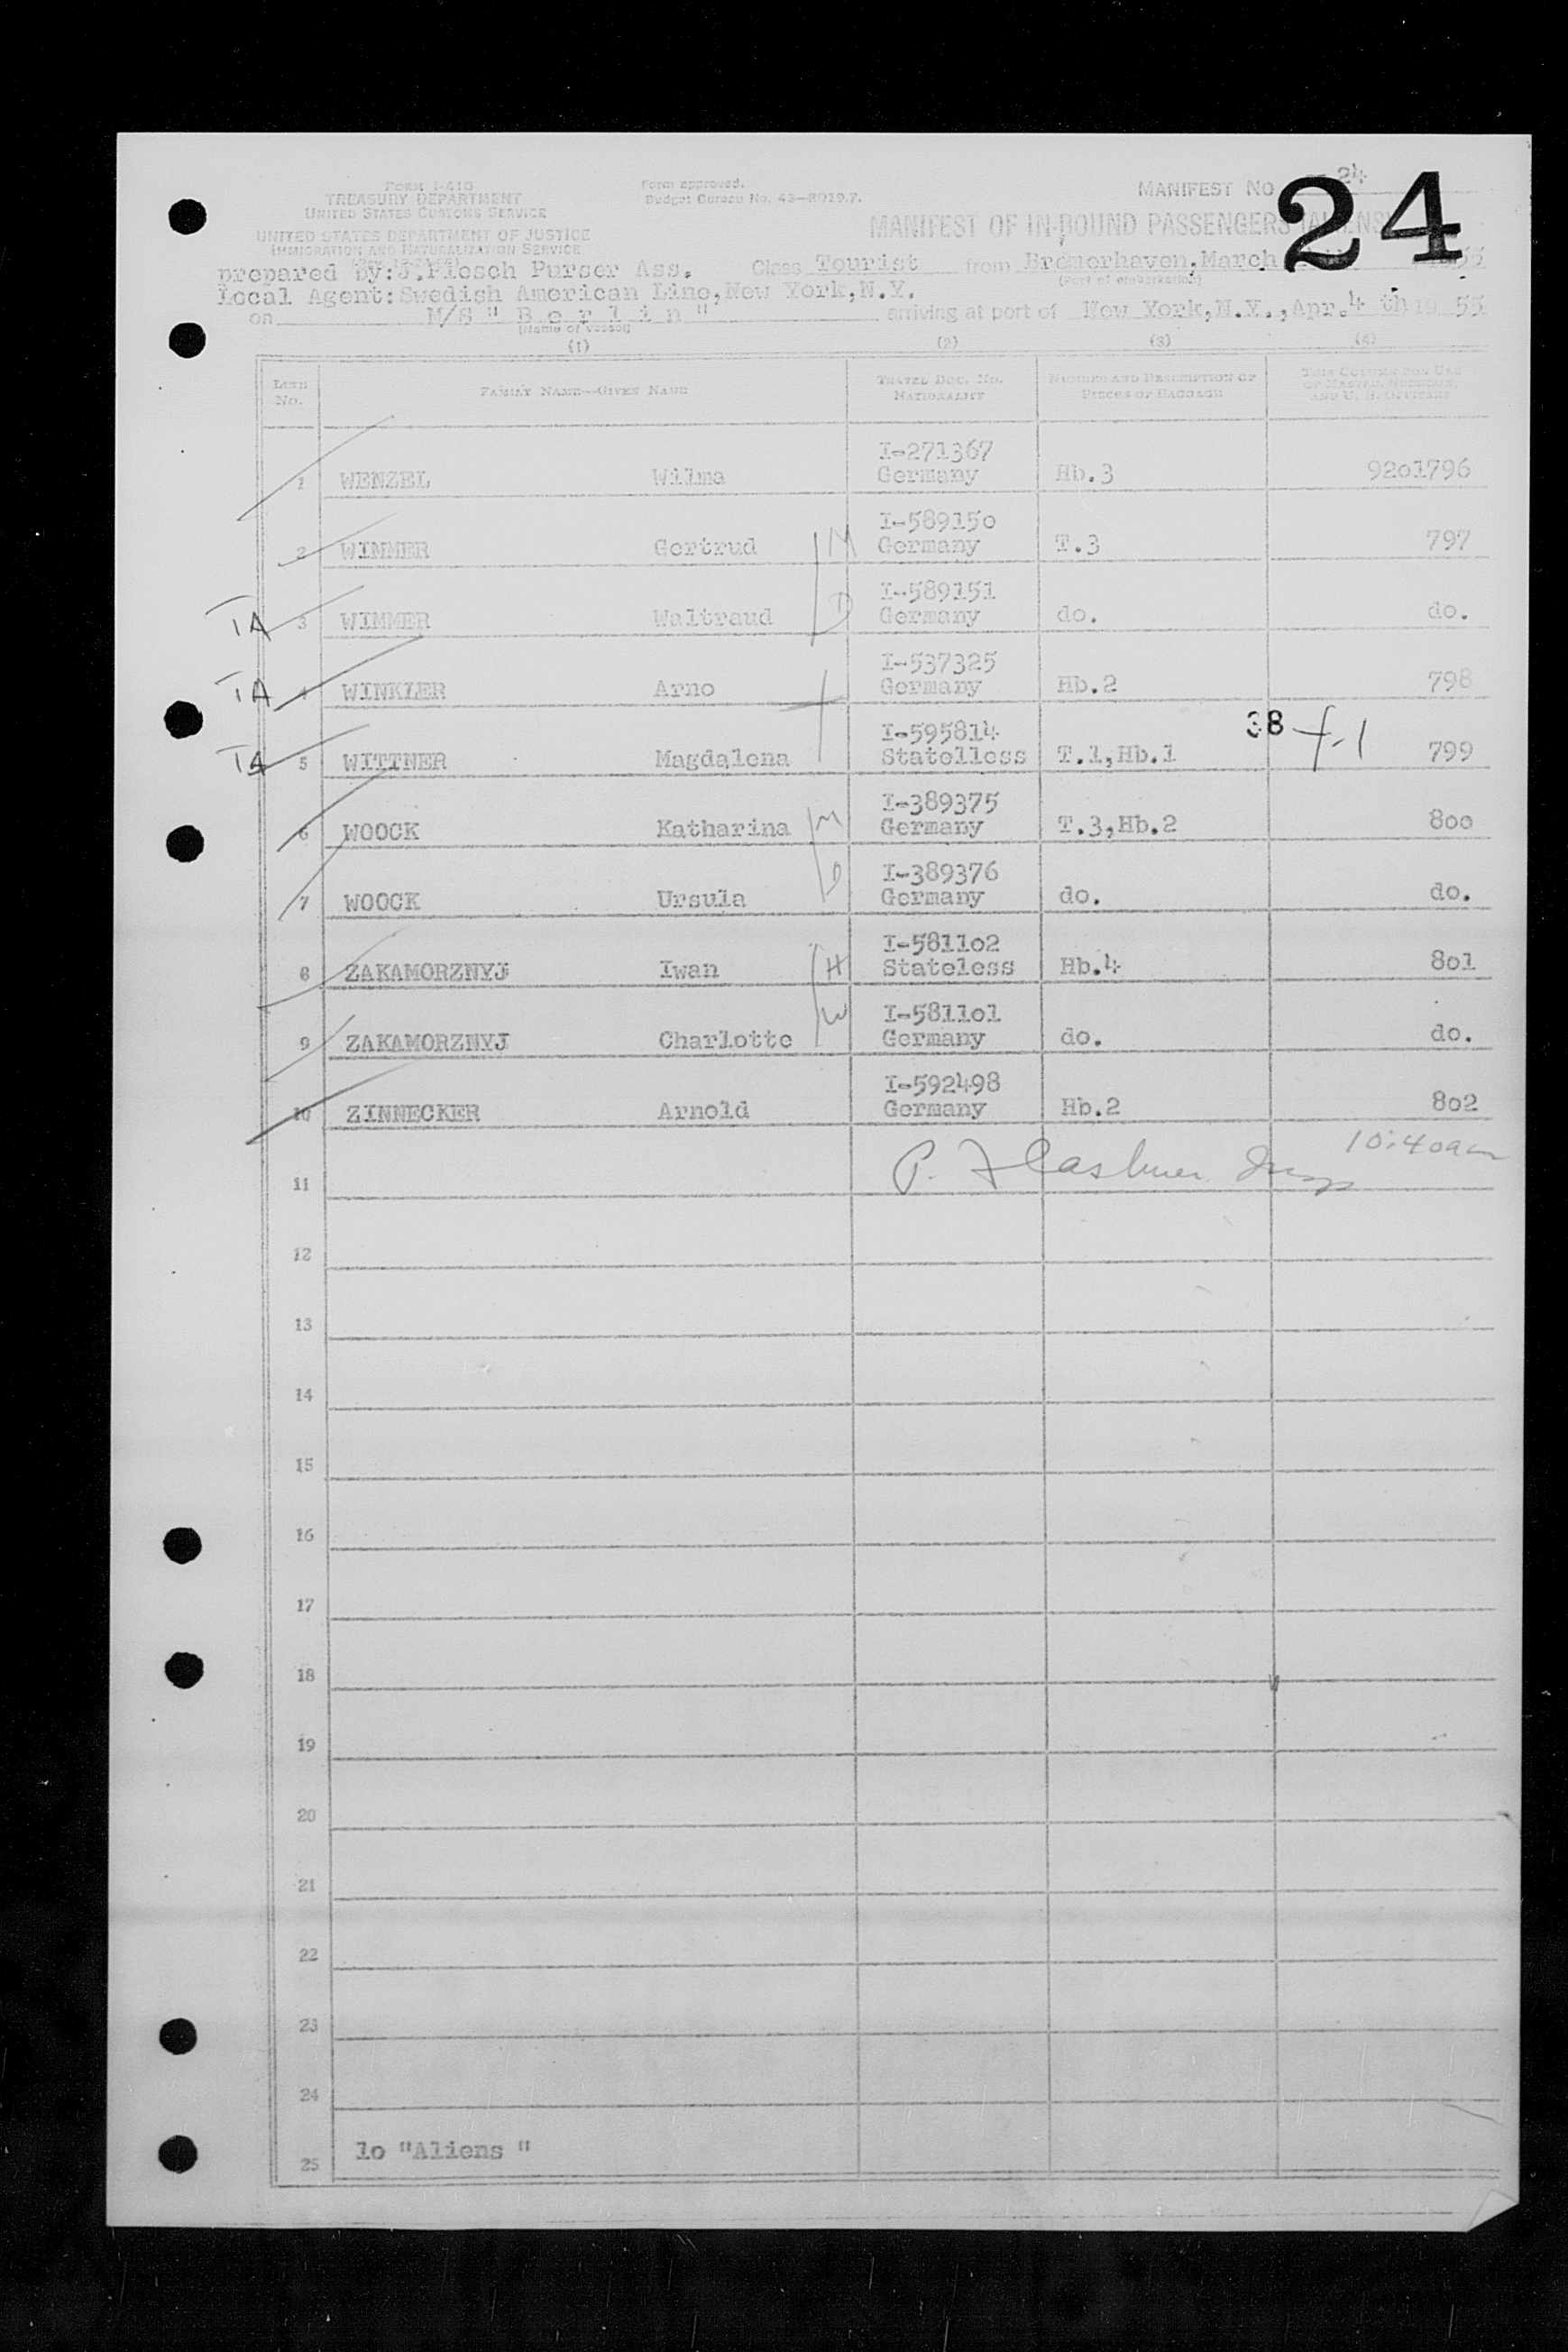 FORM I-418
TREASURY DEPARTMENT
UNITED STATES CUSTOMS SERVICE
UNITED STATES DEPARTMENT OF JUSTICE
IMMIGRATION AND NATURALIZATION SERVICE
Form approved.
Budget Bureau No. 43-R019.7.
MANIFEST No. 24
24
MANIFEST OF IN-BOUND PASSENGERS (ALIENS)
prepared by:J.Plesch Purser Ass. Class Tourist from Bremerhaven,March
(Port of embarkation)
Local Agent:Swedish American Line,New York,N.Y.
on M/S " B e r l i n " arriving at port of New York,N.Y.,Apr.4 th 19 55
(Name of vessel)
(1) (2) (3) (4)
LINE No. FAMILY NAME—GIVEN NAME TRAVEL DOC. NO. NATIONALITY NUMBER AND DESCRIPTION OF PIECES OF BAGGAGE THIS COLUMN FOR USE OF MASTER, SURGEON, AND U. S. OFFICERS
I-271367
1 WENZEL Wilma Germany Hb.3 9201796
I-589150
2 WIMMER Gertrud M Germany T.3 797
I-589151
TA 3 WIMMER Waltraud D Germany do. do.
I-537325
TA 4 WINKLER Arno Germany Hb.2 798
I-595814 38 f-1
TA 5 WITTNER Magdalena Statelless T.1,Hb.1 799
I-389375
6 WOOCK Katharina M Germany T.3,Hb.2 800
I-389376
7 WOOCK Ursula D Germany do. do.
I-581102
8 ZAKAMORZNYJ Iwan H Stateless Hb.4 801
I-581101
9 ZAKAMORZNYJ Charlotte W Germany do. do.
I-592498
10 ZINNECKER Arnold Germany Hb.2 802
10:40am
11 P.
12
13
14
15
16
17
18
19
20
21
22
23
24
25 lo "Aliens "